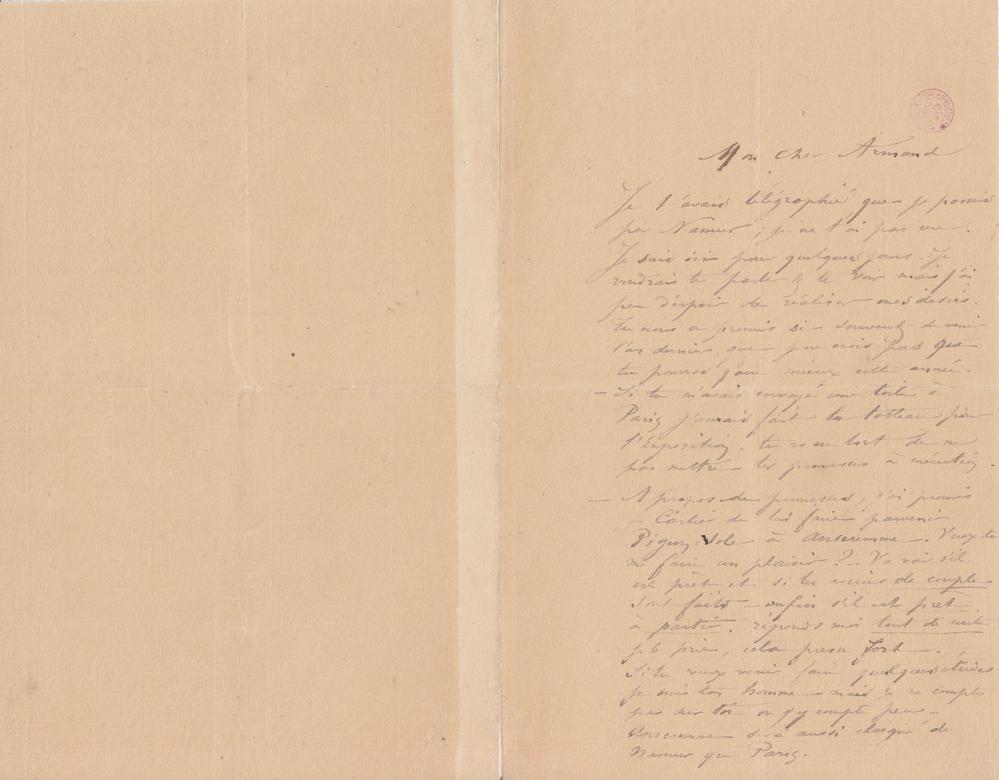 Mon cher Armand
Je t'avais télégraphié que je passais
par Namur ; je ne t'ai pas vu.
Je suis ici pour quelques jours. Je
voudrais te parler & te voir mais j'ai
peu d'espoir de réaliser mes désirs.
Tu nous a promis si souvent de venir
l'an dernier que je ne crois pas que
tu pourras faire mieux cette année.
— Si tu m'avais envoyé une toile à
Paris j'aurais fait le tableau pour
l'Exposition. tu as eu tort de ne
pas mettre tes promesses à exécution.
— A propos de promesses, j'ai promis
à Cartier de lui faire parvenir
Pigeon Vole à Anseremme. Veux-tu
me faire un plaisir ? — Va voir s'il
est prêt et si les avirons de couple
sont faits — enfin s'il est prêt
à partir. réponds moi tout de suite
je te prie, cela presse fort.
Si tu veux venir faire quelques études
je suis ton homme — mais je ne compte
pas sur toi ou j'y compte peu.
Anseremme sera aussi éloigné de
Namur que Paris.